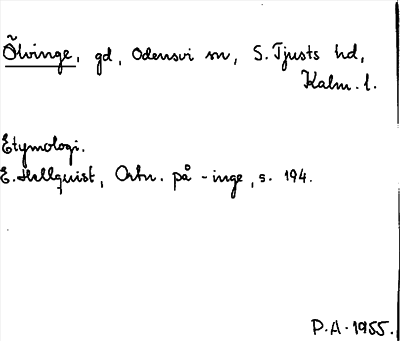 Ölvinge, gd, Odensvi sn, S. Tjusts hd,
Kalm. l.
Etymologi.
E. Hellquist, Ortn. på -inge, s. 194.
P.A. 1955.